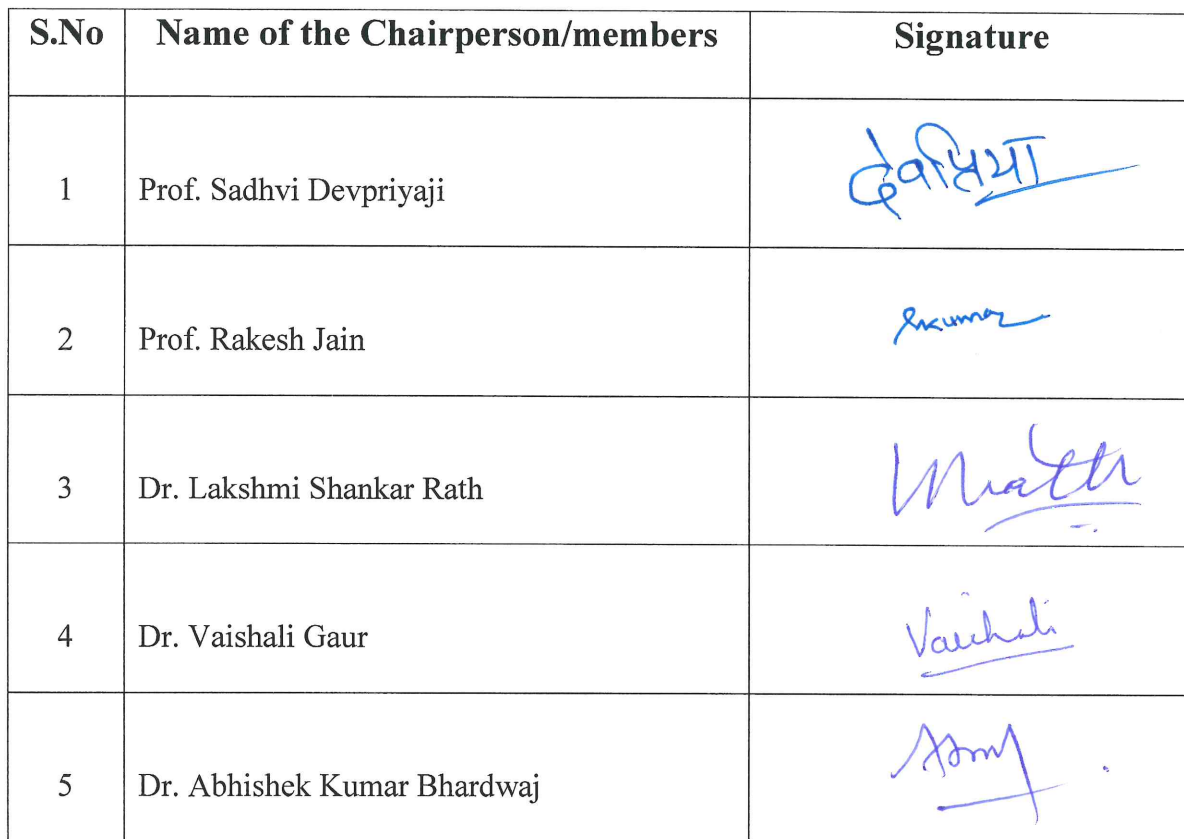 S.No Name of the Chairperson/members Signature
1 Prof. Sadhvi Devpriyaji देवप्रिया
2 Prof. Rakesh Jain
3 Dr. Lakshmi Shankar Rath
4 Dr. Vaishali Gaur Vaishali
5 Dr. Abhishek Kumar Bhardwaj